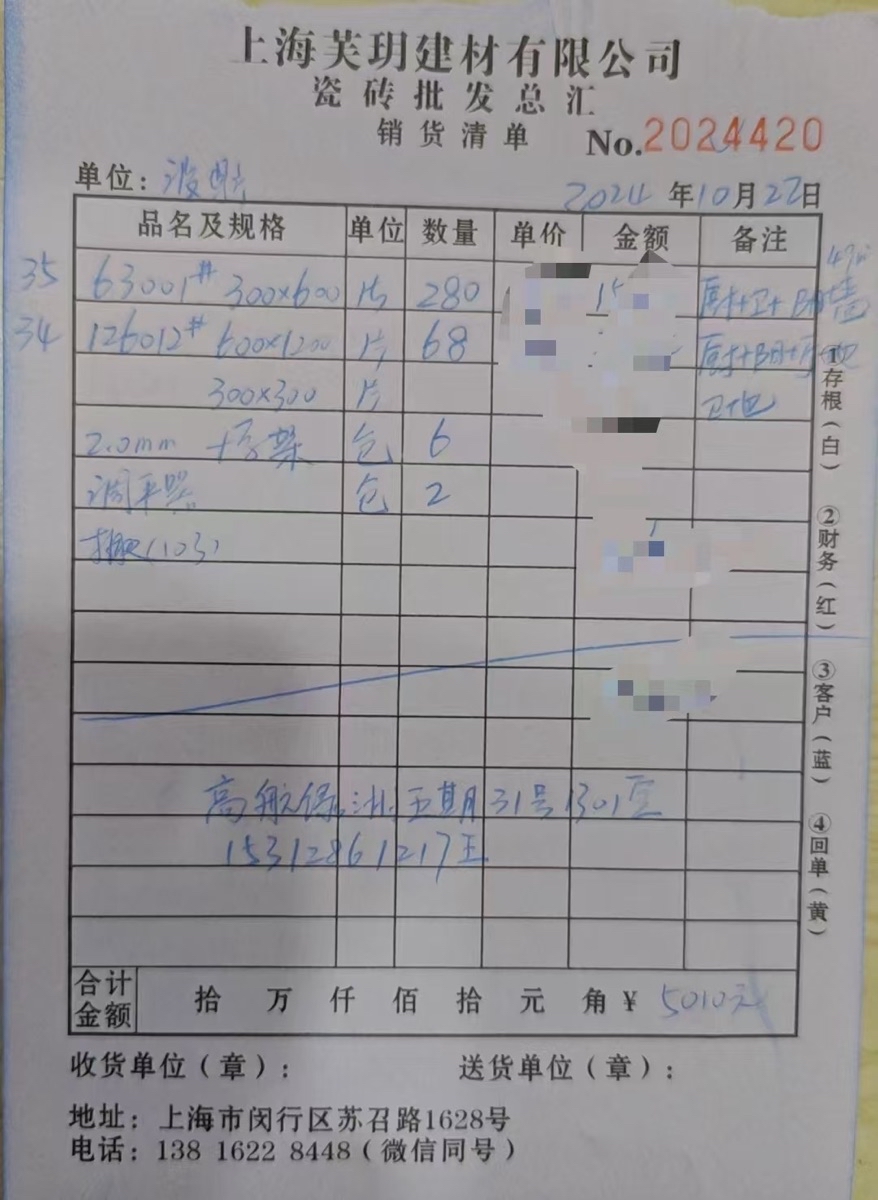 上海芙玥建材有限公司
瓷砖批发总汇
销货清单 No.2024420
单位：
2024年10月22日
品名及规格 单位 数量 单价 金额 备注
35 63001# 300×600 片 280 厨+卫+阳墙
34 126012# 600×1200 片 68 厨+阳+ 地
300×300 片 卫地
2.0mm 十字架 包 6
调平器 包 2
高航绿洲五期31号1301室
15312861217王
合计金额 拾 万 仟 佰 拾 元 角 ¥ 5010元
收货单位（章）： 送货单位（章）：
地址：上海市闵行区苏召路1628号
电话：138 1622 8448（微信同号）
①存根（白） ②财务（红） ③客户（蓝） ④回单（黄）